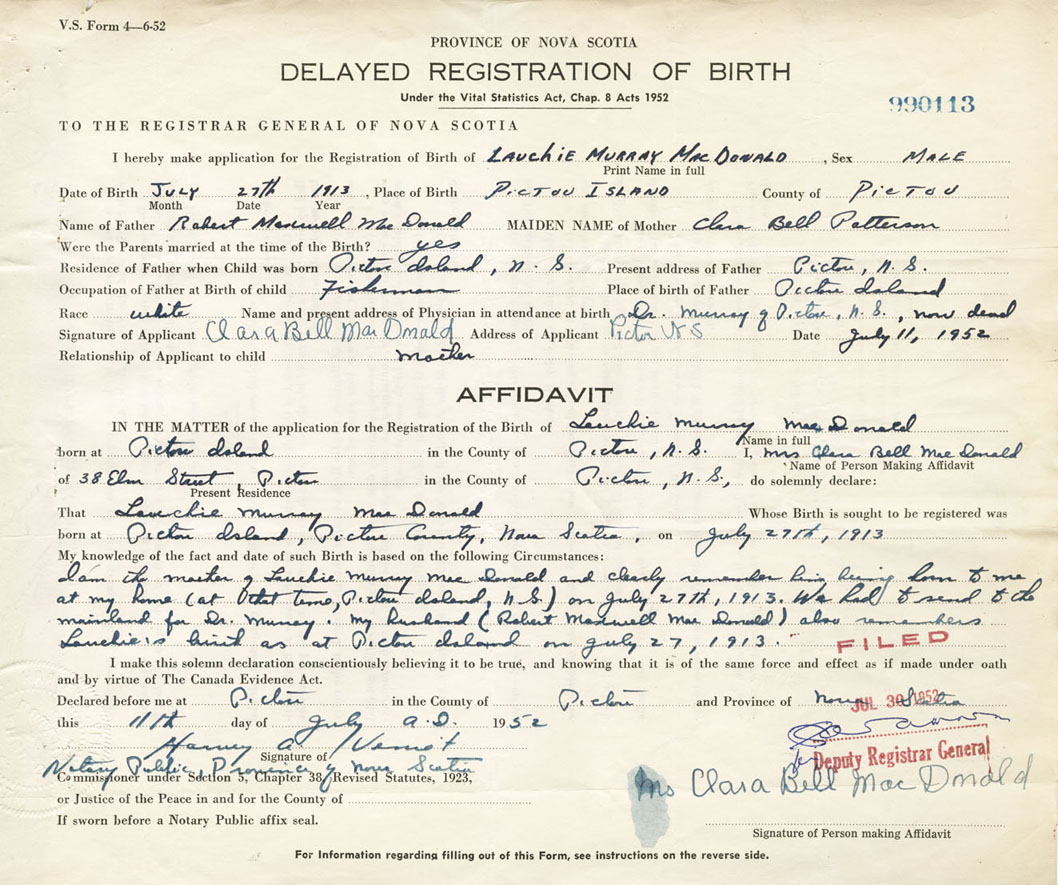 V.S. Form 4—6-52
PROVINCE OF NOVA SCOTIA
DELAYED REGISTRATION OF BIRTH
Under the Vital Statistics Act, Chap. 8 Acts 1952
990113
TO THE REGISTRAR GENERAL OF NOVA SCOTIA
I hereby make application for the Registration of Birth of LAUCHIE MURRAY MACDONALD, Sex MALE
Print Name in full
Date of Birth JULY 27TH 1913, Place of Birth PICTOU ISLAND County of PICTOU
Month Date Year
Name of Father Robert Maxwell MacDonald MAIDEN NAME of Mother Clara Bell Patterson
Were the Parents married at the time of the Birth? yes
Residence of Father when Child was born Pictou Island, N.S. Present address of Father Pictou, N.S.
Occupation of Father at Birth of child Fisherman Place of birth of Father Pictou Island
Race white Name and present address of Physician in attendance at birth Dr. Murray of Pictou, N.S., now dead
Signature of Applicant Clara Bell MacDonald Address of Applicant Pictou N S Date July 11, 1952
Relationship of Applicant to child mother
AFFIDAVIT
IN THE MATTER of the application for the Registration of the Birth of Lauchie Murray MacDonald
Name in full
born at Pictou Island in the County of Pictou, N.S. I, Mrs Clara Bell MacDonald
Name of Person Making Affidavit
of 38 Elm Street, Pictou in the County of Pictou, N.S., do solemnly declare:
Present Residence
That Lauchie Murray MacDonald Whose Birth is sought to be registered was
born at Pictou Island, Pictou County, Nova Scotia, on July 27th, 1913
My knowledge of the fact and date of such Birth is based on the following Circumstances:
I am the mother of Lauchie Murray MacDonald and clearly remember him being born to me
at my home (at that time, Pictou Island, N.S.) on July 27th, 1913. We had to send to the
mainland for Dr. Murray. My husband (Robert Maxwell MacDonald) also remembers
Lauchie's birth as at Pictou Island on July 27, 1913.
FILED
I make this solemn declaration conscientiously believing it to be true, and knowing that it is of the same force and effect as if made under oath
and by virtue of The Canada Evidence Act.
Declared before me at Pictou in the County of Pictou and Province of Nova Scotia
JUL 30 1952
this 11th day of July A.D. 1952
Harvey A. Veniot
Signature of
Deputy Registrar General
Notary Public, Province of Nova Scotia
Commissioner under Section 5, Chapter 38, Revised Statutes, 1923,
Mrs Clara Bell MacDonald
or Justice of the Peace in and for the County of
If sworn before a Notary Public affix seal.
Signature of Person making Affidavit
For Information regarding filling out of this Form, see instructions on the reverse side.